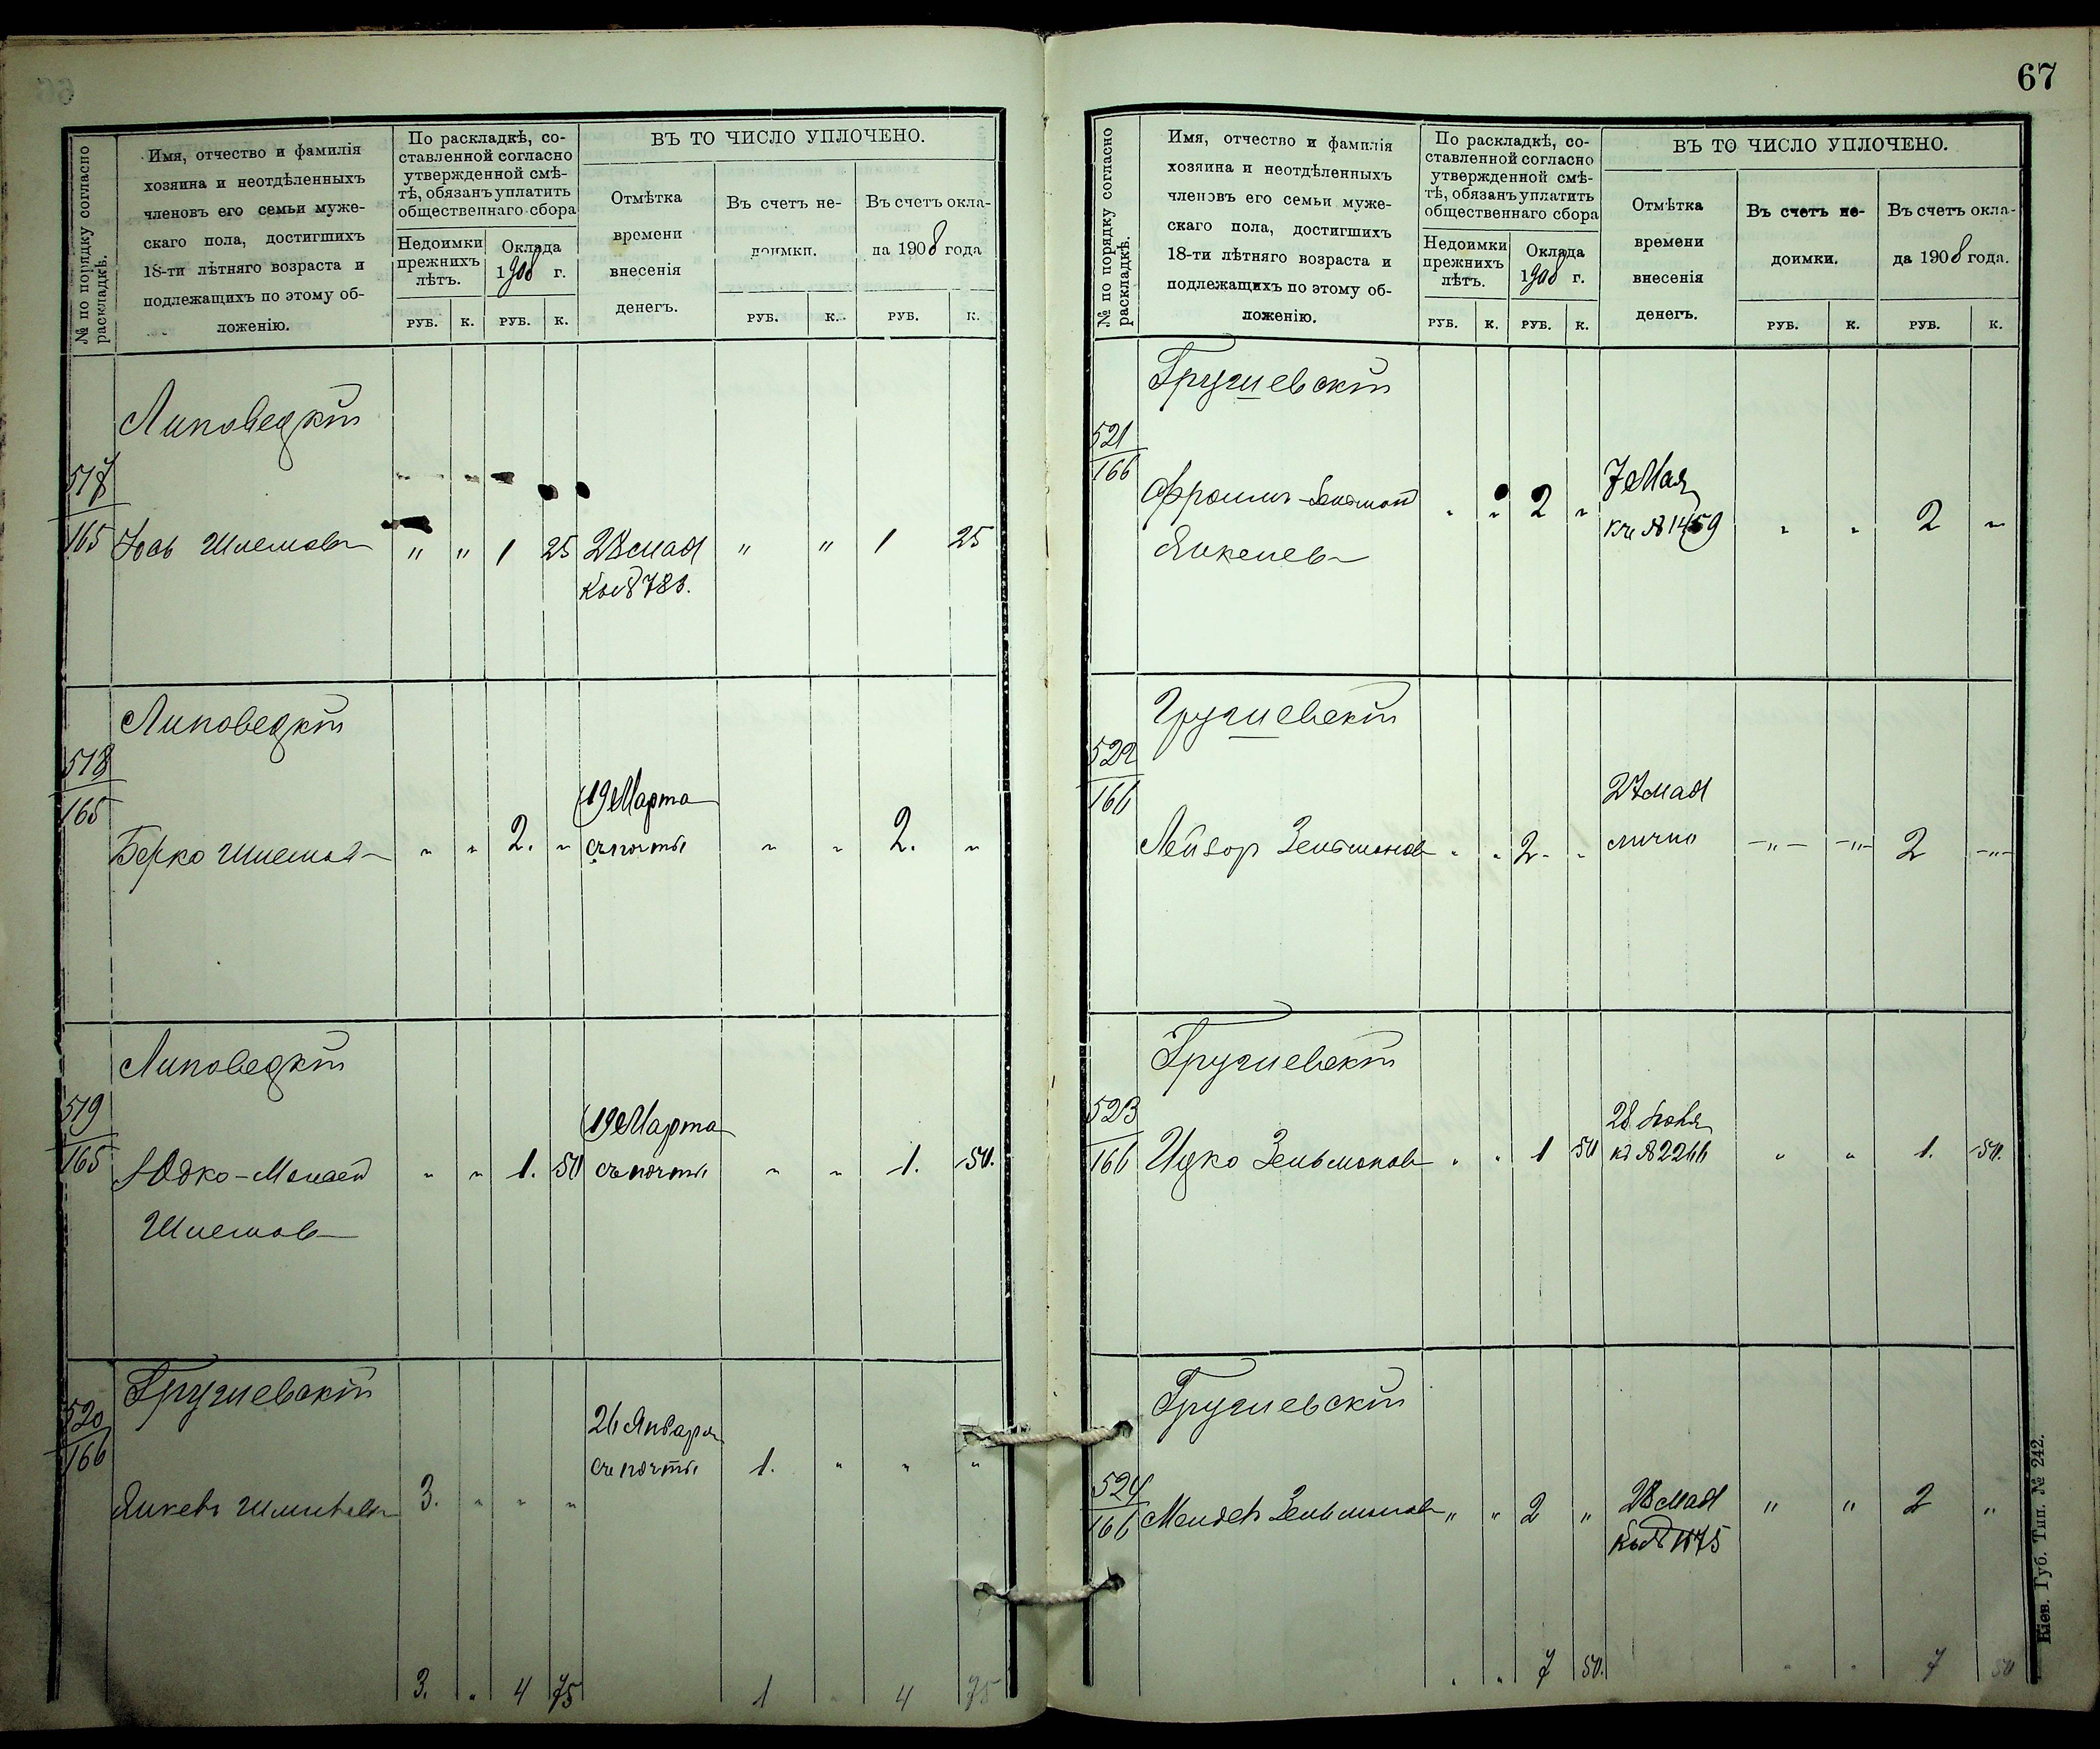 № по порядку согласно раскладкѣ.
Имя, отчество и фамилія
хозяина и неотдѣленныхъ
членовъ его семьи муже-
скаго пола, достигшихъ
18-ти лѣтняго возраста и
подлежащихъ по этому об-
ложенію.
По раскладкѣ, со-
ставленной согласно
утвержденной смѣ-
тѣ, обязанъ уплатить
общественнаго сбора
Недоимки
прежнихъ
лѣтъ.
Оклада
1908 г.
РУБ. К. РУБ. К.
ВЪ ТО ЧИСЛО УПЛОЧЕНО.
Отмѣтка
времени
внесенія
денегъ.
Въ счетъ не-
доимки.
Въ счетъ окла-
да 1908 года
РУБ. К. РУБ. К.
Липовецкій
517
165 Іось Шлемовъ " " 1 25 28 мая " " 1 25
Липовецкій
518
165
19 Марта
Берко Шлемов " " 2. " съ почты " " 2. "
Липовецкій
519
165
19 Марта
Юдко- " " 1. 50 съ почты " " 1. 50.
Шлемов
520
166
26 Января
съ почты 1. " " "
Янкель 3. " " "
3. " 4 75 1 " 4 75
67
№ по порядку согласно раскладкѣ.
Имя, отчество и фамилія
хозяина и неотдѣленныхъ
членовъ его семьи муже-
скаго пола, достигшихъ
18-ти лѣтняго возраста и
подлежащихъ по этому об-
ложенію.
По раскладкѣ, со-
ставленной согласно
утвержденной смѣ-
тѣ, обязанъ уплатить
общественнаго сбора
Недоимки
прежнихъ
лѣтъ.
Оклада
1908 г.
РУБ. К. РУБ. К.
ВЪ ТО ЧИСЛО УПЛОЧЕНО.
Отмѣтка
времени
внесенія
денегъ.
Въ счетъ не-
доимки.
Въ счетъ окла-
да 1908 года.
РУБ. К. РУБ. К.
521
166
7 Мая
Фроим-Зельман " " 2 " № 1459 " " 2 "
Янкелев
522
166
27 мая
Лейзор Зельманов " " 2 " лично " " 2 "
523
166
28
Ицко Зельманов " " 1 50 № 2266 " " 1. 50.
524
166
Мендель Зельманов " " 2 " 28 мая " " 2 "
" " 7 50. " " 7 50
Кіев. Губ. Тип. № 242.